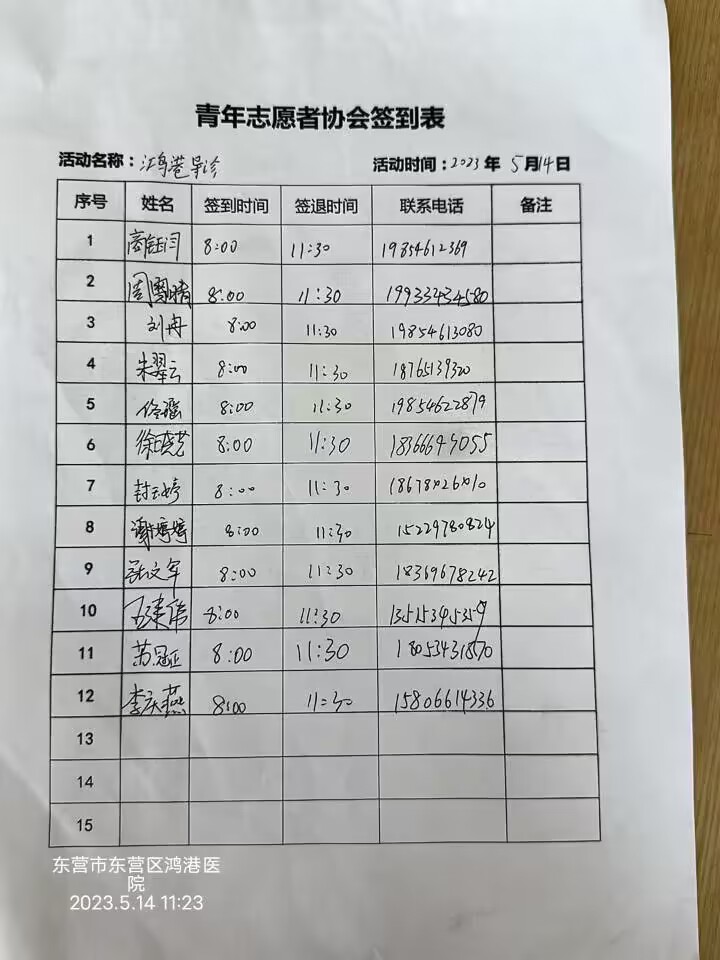 青年志愿者协会签到表
活动名称：鸿港导诊 活动时间：2023年 5月14日
序号 姓名 签到时间 签退时间 联系电话 备注
1 8:00 11:30 19854612369
2 8:00 11:30 19933434580
3 刘冉 8:00 11:30 19854613080
4 朱翠云 8:00 11:30 18765139320
5 徐璐 8:00 11:30 19854622879
6 徐晓艺 8:00 11:30
7 封玉婷 8:00 11:30
8 谢婷婷 8:00 11:30 15229780824
9 张文军 8:00 11:30 18369678242
10 王建伟 8:00 11:30
11 苏冠正 8:00 11:30
12 李庆燕 8:00 11:30 15806614336
13
14
15
东营市东营区鸿港医
院
2023.5.14 11:23